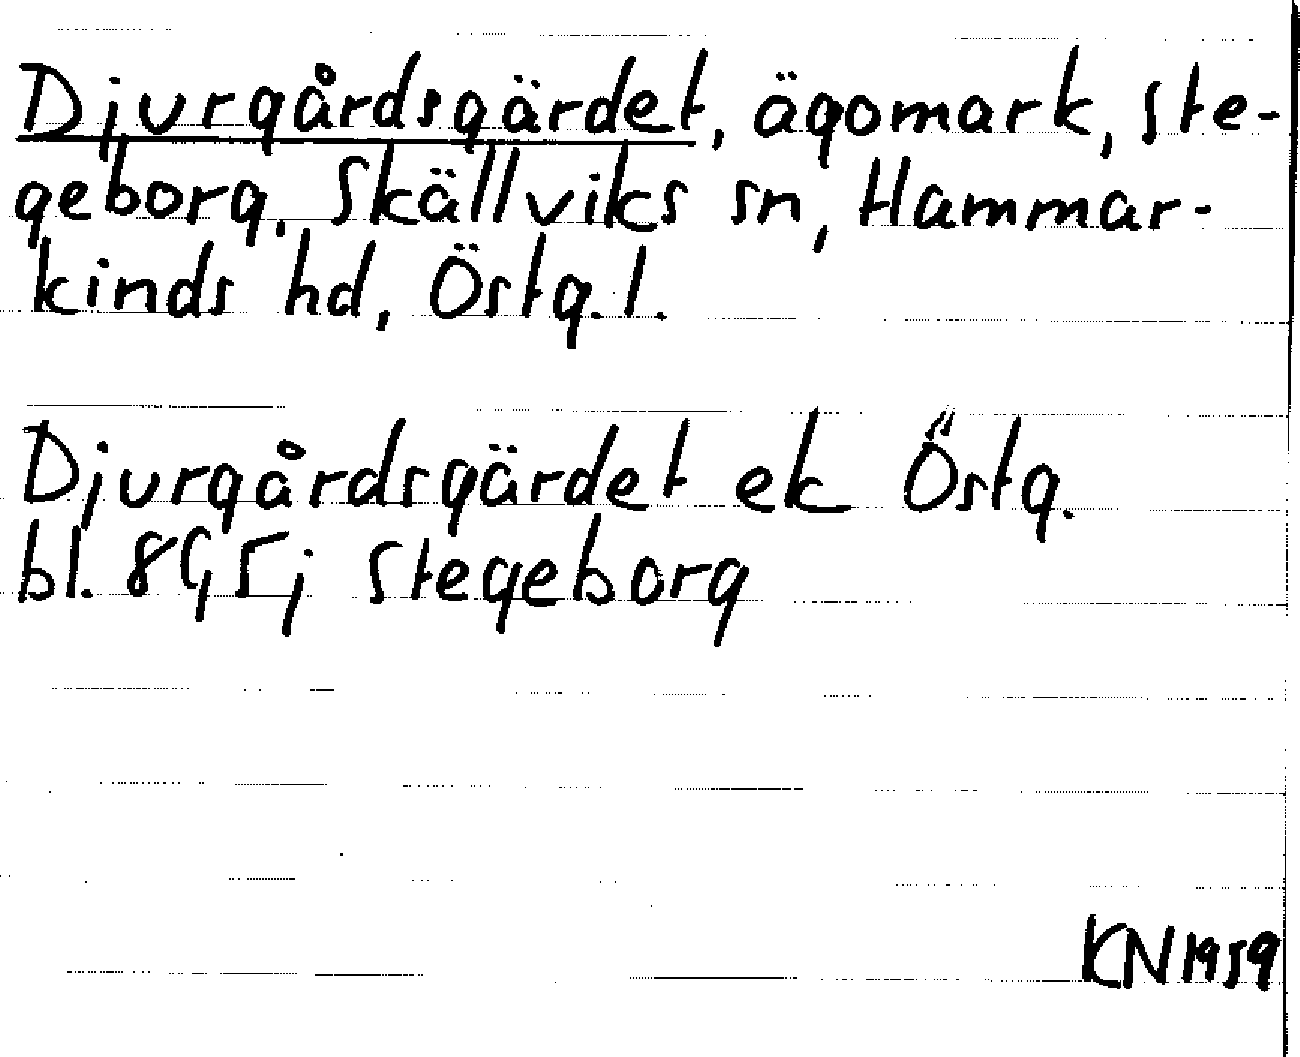 Djurgårdsgärdet, ägomark, Ste-
geborg. Skällviks sn, Hammar-
kinds hd, Östg. l.
Djurgårdsgärdet ek Östg.
bl. 8G5j Stegeborg
KN 1959